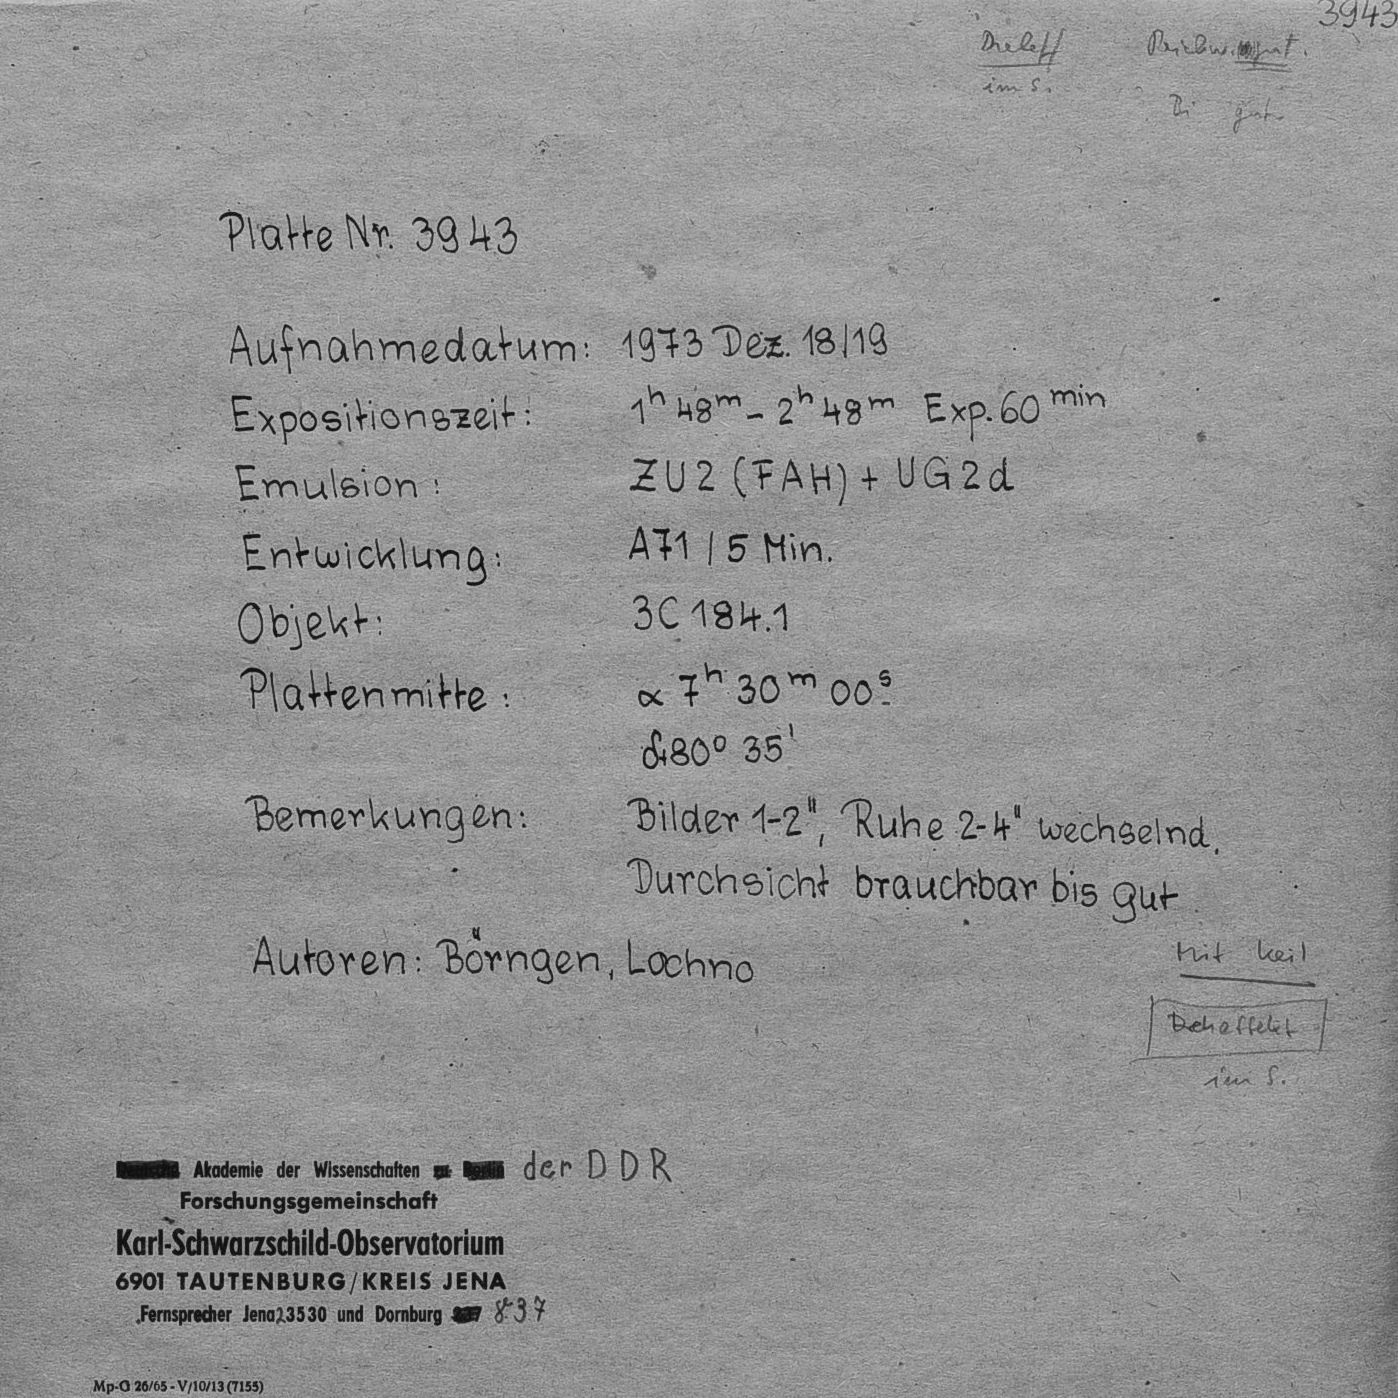 3943
im S.
gut
Platte Nr. 3943
Aufnahmedatum: 1973 Dez. 18/19
Expositionszeit: 1h 48m - 2h 48m Exp. 60 min
Emulsion: ZU2 (FAH) + UG2d
Entwicklung: A71 / 5 Min.
Objekt: 3C 184.1
Plattenmitte: α 7h 30m 00s
δ+80° 35'
Bemerkungen: Bilder 1-2", Ruhe 2-4" wechselnd,
Durchsicht brauchbar bis gut
Autoren: Börngen, Lochno
Mit Keil
im S.
Akademie der Wissenschaften der DDR
Forschungsgemeinschaft
Karl-Schwarzschild-Observatorium
6901 TAUTENBURG/KREIS JENA
Fernsprecher Jena 23530 und Dornburg 837
Mp-G 26/65 - V/10/13 (7155)